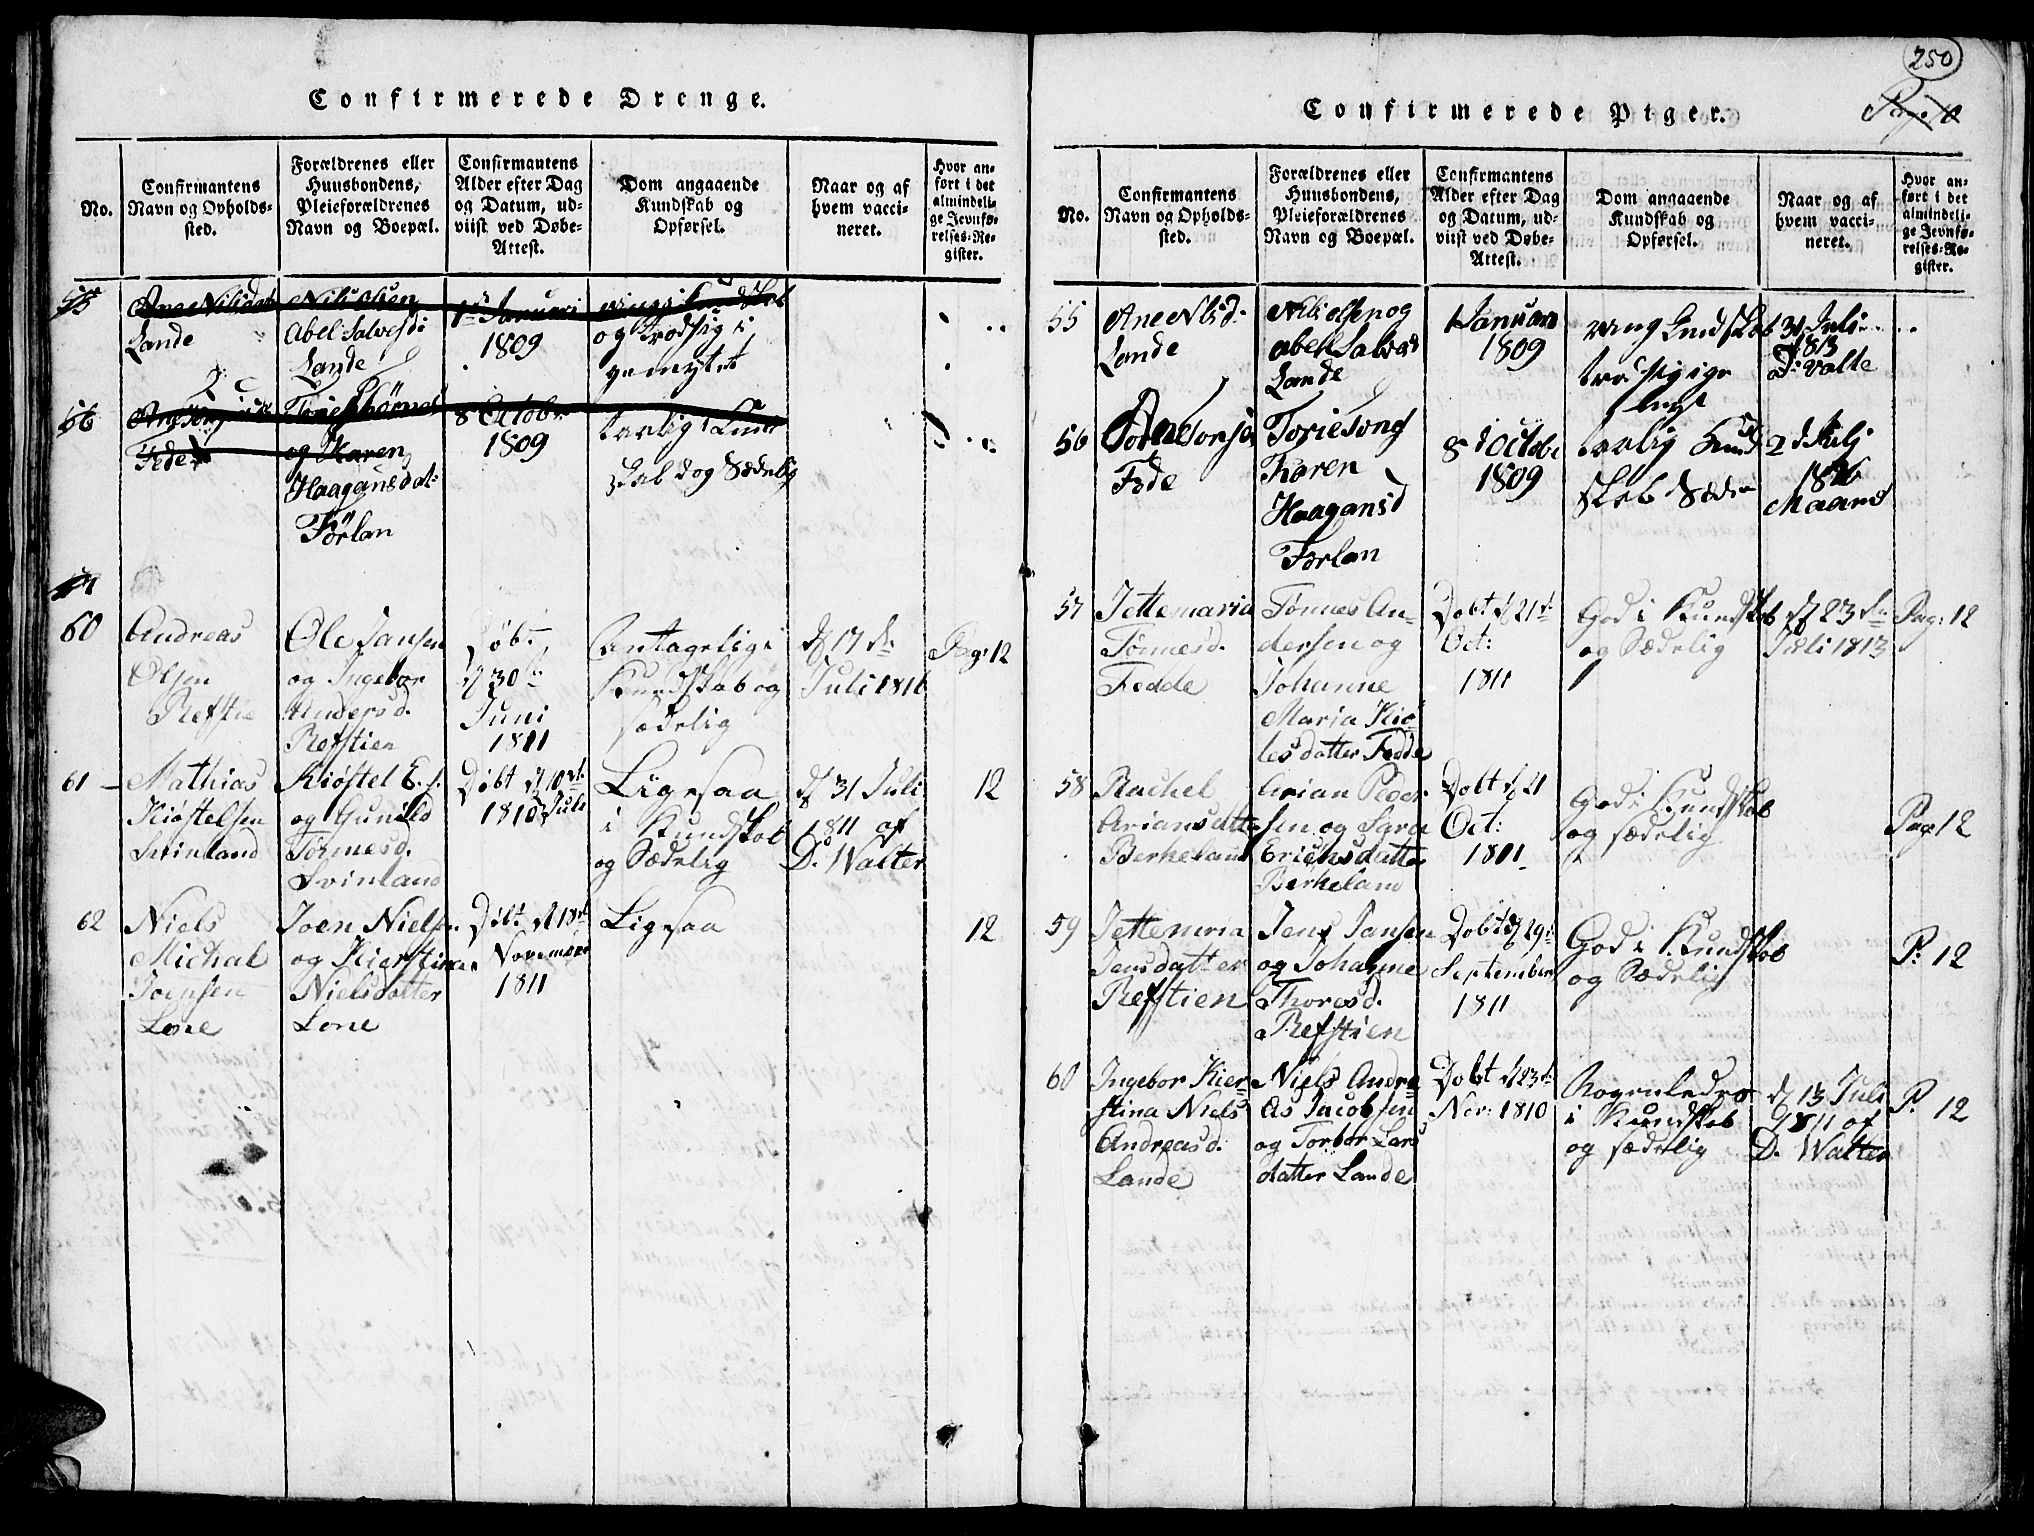 Confirmerede Drenge.
No.
Confirmantens
Navn og Opholds-
sted.
Forældrenes eller
Huusbondens,
Pleieforældrenes
Navn og Boepæl.
Confirmantens
Alder efter Dag
og Datum, ud-
viist ved Døbe-
Attest.
Dom angaaende
Kundskab og
Opførsel.
Naar og af
hvem vacci-
neret.
Hvor an-
ført i det
almindeli-
ge Jevnfø-
relses-Re-
gister.
55
Ane Nilsdat
Lande
Nils Olsen
Abel Salvesd
Lande
1 Januari
1809
ringe Kundskab
og trodsig i
gemytet
56
Fede
og Karen
Haagansdat:
Førlan
8 Octobr
1809
tarlig Kund
skab dog Sædelig
60
Andreas
Olsen
Refstie
Ole Jansen
og Ingebor
Andersd.
Refstien
Døbt
d 30te
Juni
1811
Antagelig i
Kundskab og
sædelig
d 17 de
Juli 1816
Pag: 12
61
Mathias
Kiøstelsen
Svinland
Kiøstel E. s.
og Gunild
Tønnesd.
Svinland
Døbt d 10de
1810 Juli
Ligesaa
i Kundskab
og Sædelig
d 31 Juli
1811 af
D. Walter
12
62
Niels
Michal
Joensen
Lone
Joen Nielsen
og Kierstine
Nielsdatter
Lone
Døbt d 18de
November
1811
Ligesaa
12
250
Confirmerede Piger.
No.
Confirmantens
Navn og Opholds-
sted.
Forældrenes eller
Huusbondens,
Pleieforældrenes
Navn og Boepæl.
Confirmantens
Alder efter Dag
og Datum, ud-
viist ved Døbe-
Attest.
Dom angaaende
Kundskab og
Opførsel.
Naar og af
hvem vacci-
neret.
Hvor an-
ført i det
almindeli-
ge Jevnfø-
relses-Re-
gister.
55
Ane Nlsd:
Lande
Nils Olsen og
Abel Salvesd
Lande
1 Januari
1809
ring Kundskab
31 Juli
1813
D: Valte
56
Fede
Karen
Haagansd
Førlan
8 d Octobr
1809
tarlig Kund
skab Sæde
2 d Julj
1816
57
Jettemaria
Tønnesd.
Fedde
Tønnes An-
dersen og
Johanne
Maria Kiø
lesdatter Fedde
Dobt d 21de
Oct:
1811
God i Kundskab
og Sædelig
d 23de
Juli 1813
Pag: 12
58
Rachel
Ariansdatte
Berkeland
Arian Peder-
sen og Sara
Erichsdatter
Berkeland
Dobt d 21
Oct:
1811
God i Kundskab
og sædelig
Pag 12
59
Jettemria
Jensdatter
Refstien
Jens Jansen
og Johanne
Thoresd.
Refstien
Dobt d 29de
September
1811
God i Kundskab
og Sædelig
P: 12
60
Ingebor Kier-
stina Niels
Andreasd.
Lande
Niels Andre
as Jacobsen
og Torbor Lars
datter Lande
Dobt d 23de
Nov: 1810
i Kundskab
og sædelig
d 13 Juli
1811 af
D. Walter
P. 12